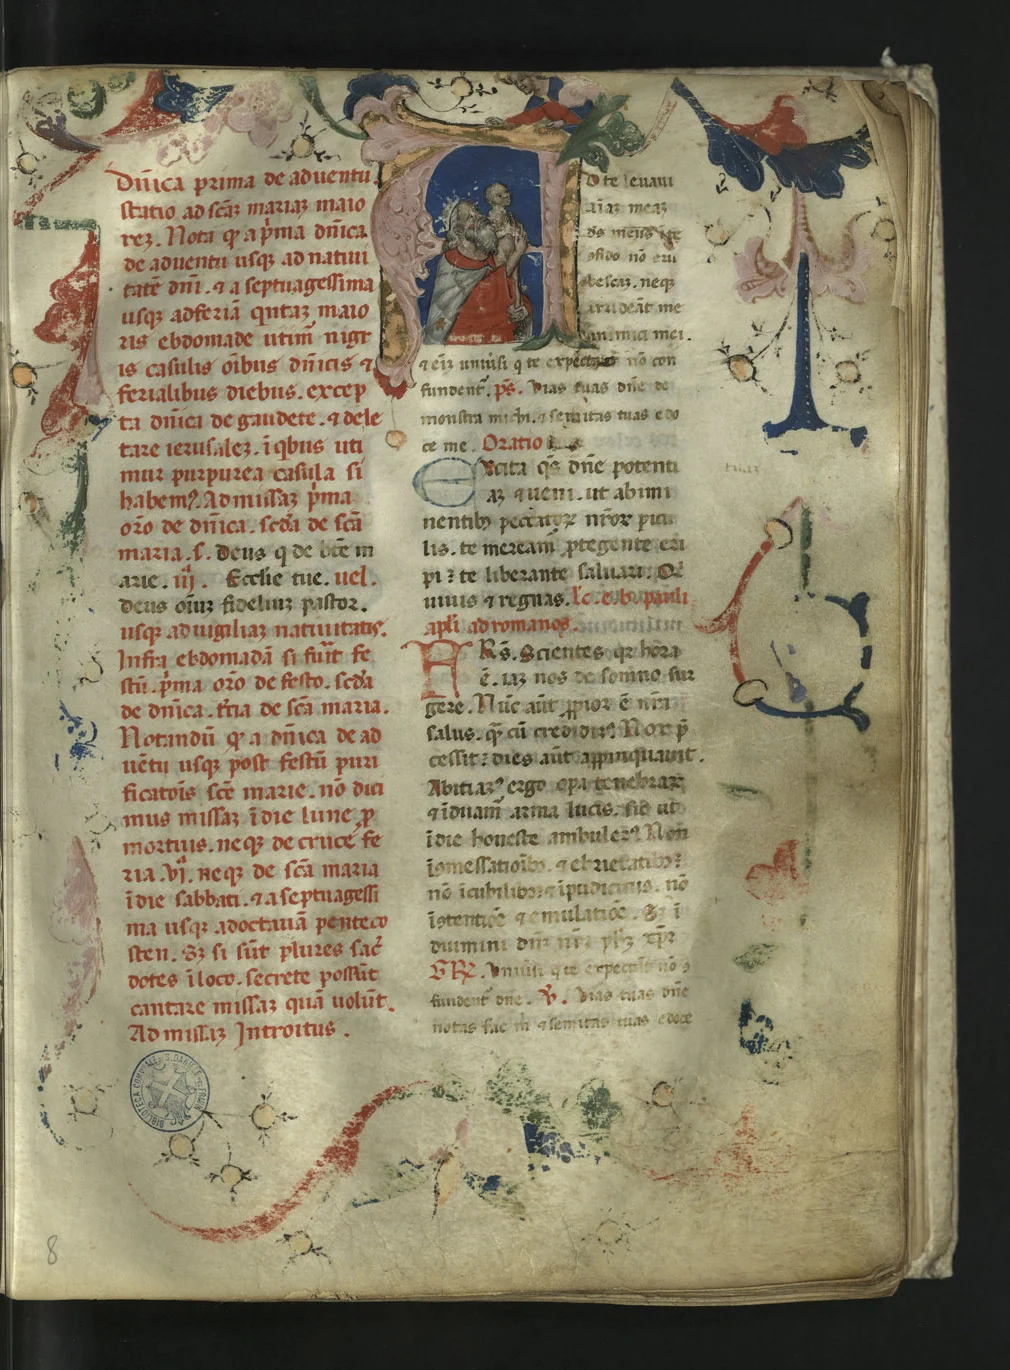 Dñica prima de aduentu.
statio ad scāz mariaz maio
rez. Nota qͥ a pͥma dñica
de aduentu usqꝫ ad natiui
tatē dñi. ⁊ a septuagessima
usqꝫ ad feriā qntaz maio
ris ebdomade utimͬ nigr
is casulis oībus dñicis ⁊
ferialibus diebus. excep
ta dñica de gaudete. ⁊ dele
tare ierusalez. ī qbus uti
mur purpurea casula si
habemꝰ. Ad missaz pͥma
oro de dñica. scda de scā
maria .s. Deus q de bt̄e m
arie. iij. Ecclie tue. uel.
deus oīuz fideliuz pastor.
usqꝫ ad uigiliaz natiuitatis.
Infra ebdomadā si fuīt fe
stū. pͥma oro de festo. scda
de dñica. tr̄ia de scā maria.
Notandū qͥ a dñica de ad
uētu usqꝫ post festū puri
ficatoīs scē marie. nō dici
mus missaz ī die lune ꝓ
mortuis. neqꝫ de cruce fe
ria .vj. neqꝫ de scā maria
ī die sabbati. ⁊ a septuagessi
ma usqꝫ ad octauā penteco
sten. Sꝫ si sūt plures sac̄
dotes ī loco. secrete possūt
cantare missaz quā uolūt.
Ad missaz Introitus.
AD te leuaui
aīaz meaz
ds meus
ꝯfido nō eru
bescaz. neqꝫ
irrideāt me
inimici mei.
⁊ eīz uniūsi q te expectāt nō con
fundentͬ. ps. Vias tuas dñe de
monstra michi. ⁊ semitas tuas edo
ce me. Oratio
Excita qs dñe potenti
aꝫ ⁊ ueni. ut ab imi
nentibꝫ peccatoꝝ nr̄oꝝ picu
lis. te mereamͬ ꝓtegente eri
pi: te liberante saluari. Q̄
uiuis ⁊ regnas. lc̄. e. b. pauli
apli ad romanos.
FRs̄. Scientes qꝛ hora
ē. iaz nos de somno sur
gere. Nūc aūt ꝓpior ē nr̄a
salus. qͣ cū credidimꝰ. Nox p̄
cessit: dies aūt appinquauit.
Abiciamꝰ ergo opa tenebraꝝ
⁊ īduamͬ arma lucis. sic ut
ī die honeste ambulemꝰ. Non
ī ꝯmessatioībꝫ. ⁊ ebrietatibꝫ:
nō ī cubilibꝫ ⁊ īpudicitiis. nō
ī ꝯtentiōe ⁊ emulatiōe. Sꝫ ī
duimini dñm nr̄m yhꝫ xp̄m
GR̄. Vniūsi q te expectāt nō ꝯ
fundentͬ dñe. V̄. Vias tuas dñe
notas fac m ⁊ semitas tuas edoce
BIBLIOTECA COMUNALE S. DANIELE DEL FRIULI
8